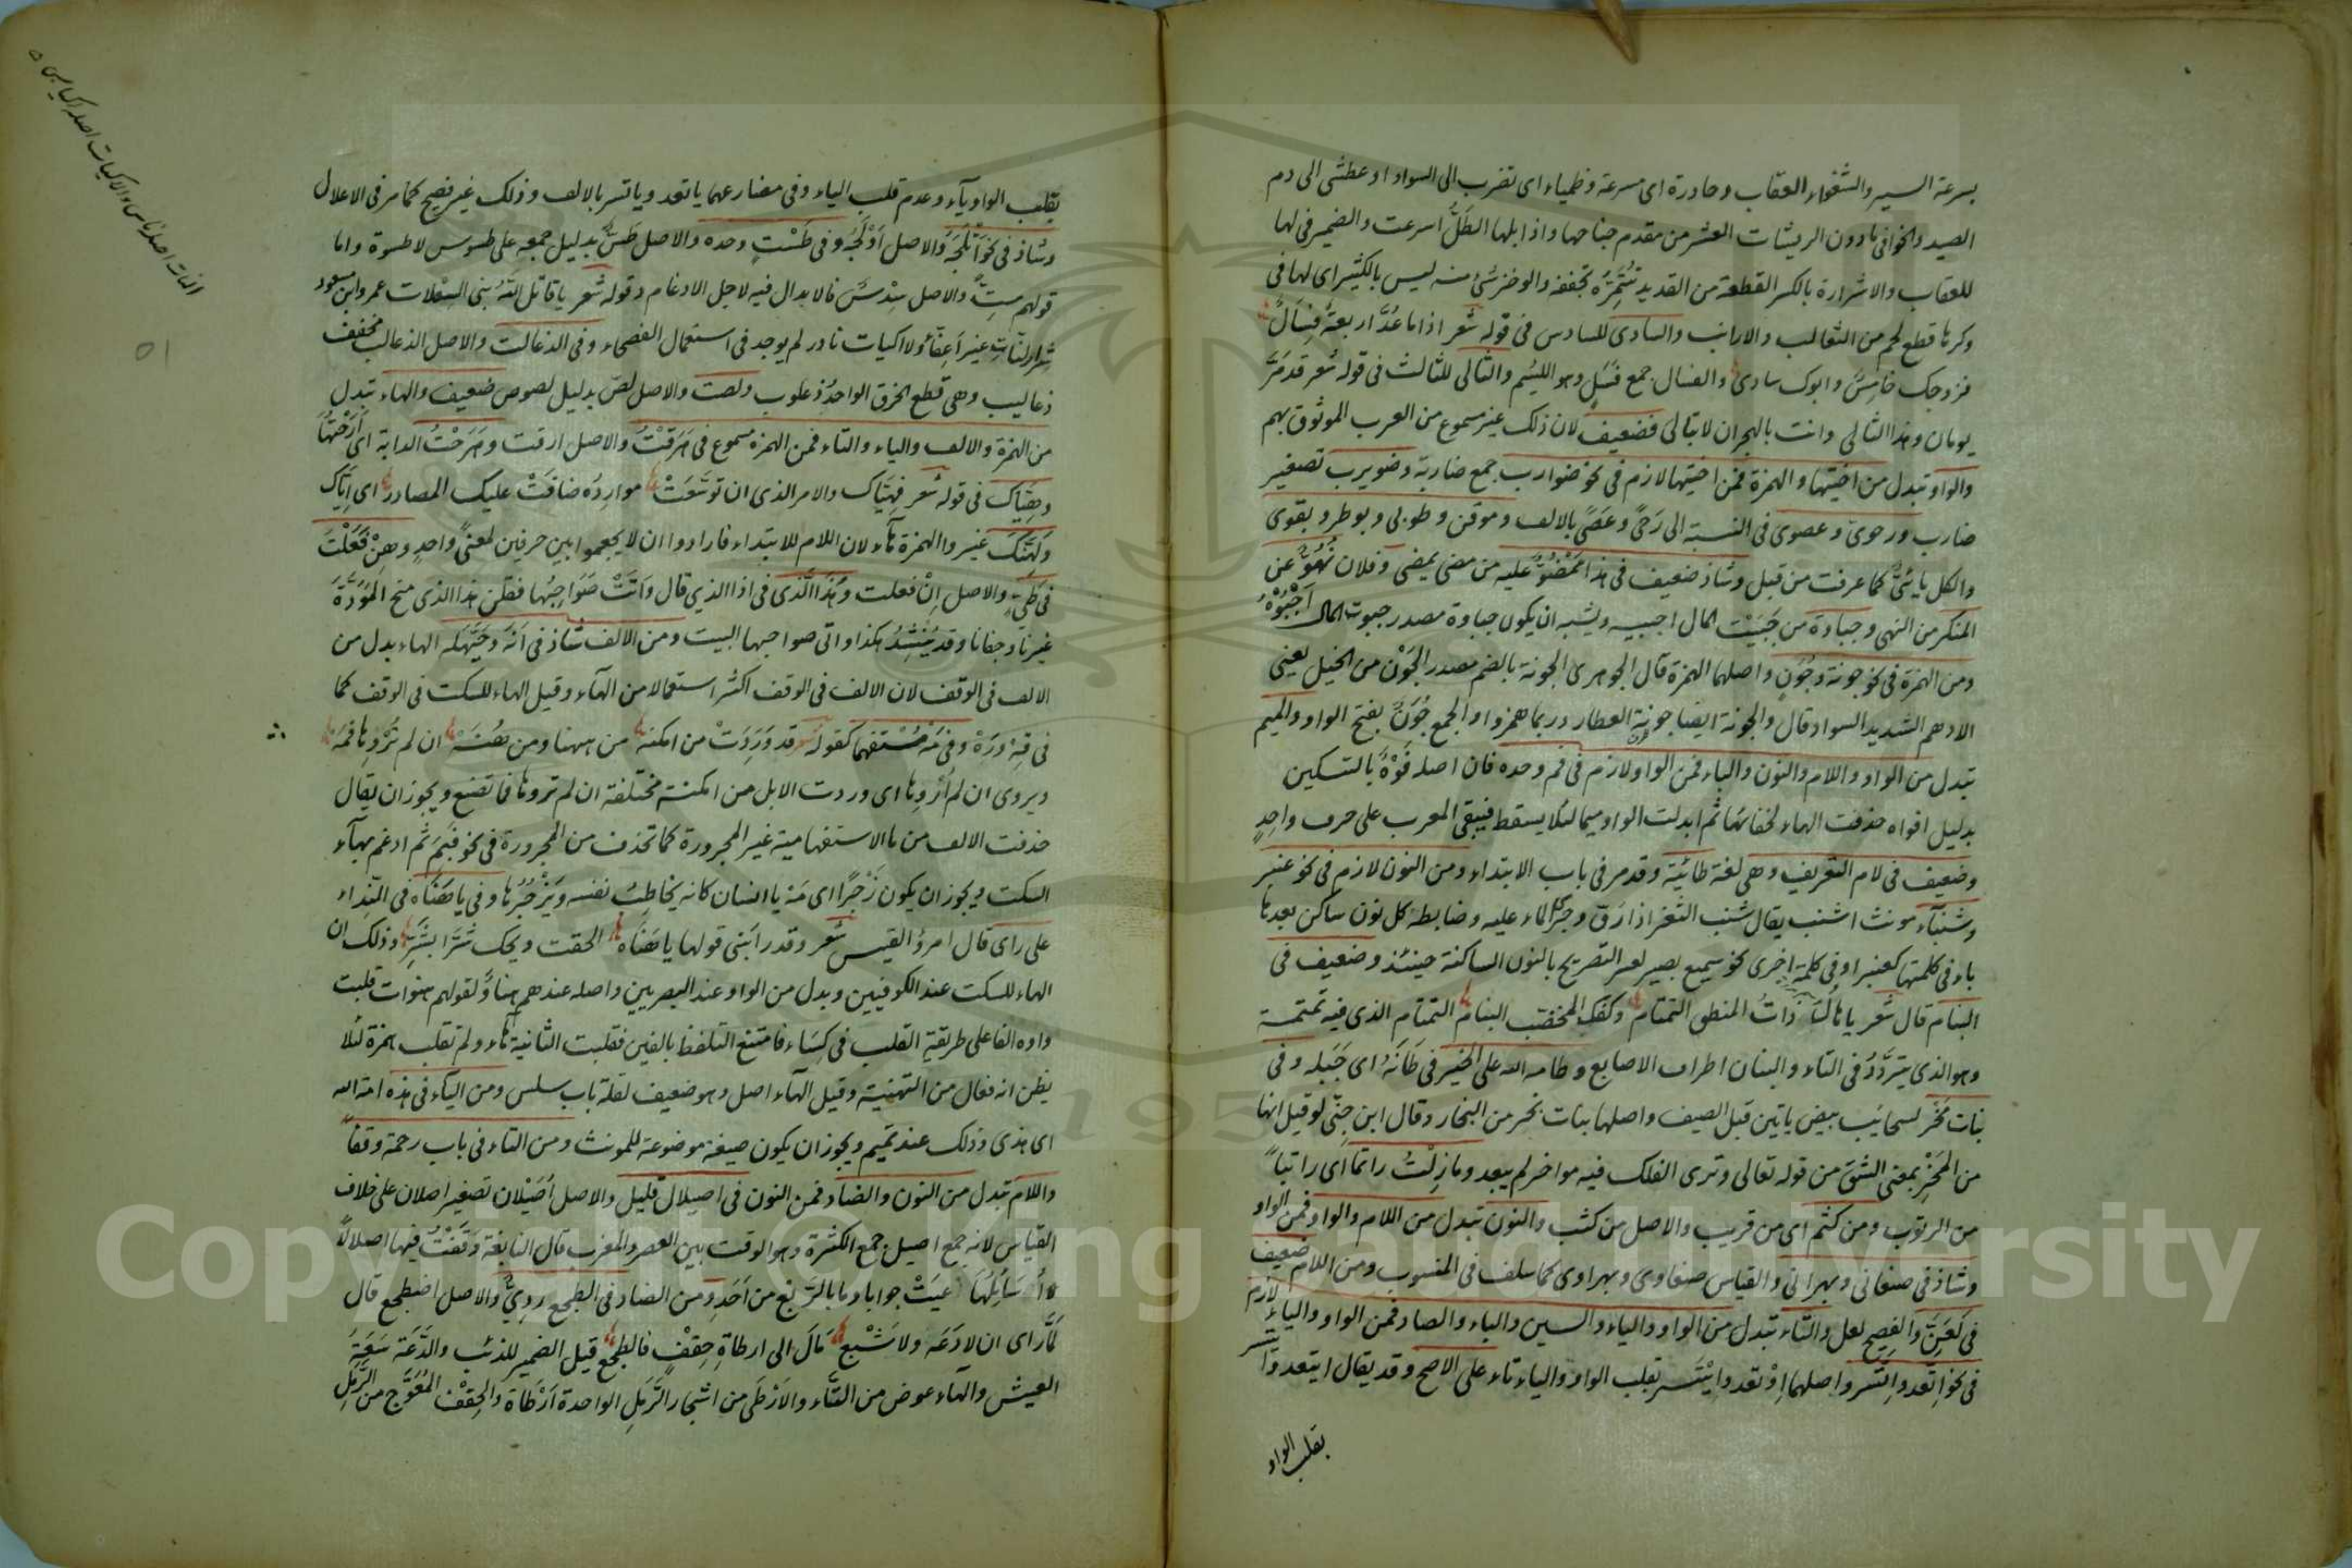 بسرعة السير والشغواء العقاب وحادرة اى مسرعة وظمياء اى تضرب الى السواد او عطشى الى دم
الصيد والخوافى ما دون الريشات العشر من مقدم جناحها واذا بلها الطَلُّ اسرعت والضمير فى لها
للعقاب والاشرارة بالكسر القطعة من القديد تُتَمِّرُه تجففه والوخز شئ منه ليس بالكثير اى لها فى
وكرها قطع لحم من الثعالب والارانب والسادى للسادس فى قوله شعر اذا ما عُدَّ اربعةٌ فِسَالٌ
فزوجك خامِسٌ وابوك سادى والفسال جمع فَسْلٍ وهو اللئيم والثالى للثالث فى قوله شعر قد مَرَّ
يومان وهذا الثالى وانت بالهجران لا تبالى فضعيف لان ذلك غير مسموع من العرب الموثوق بهم
والواو تبدل من اختيها والهمزة فمن اختيها لازم فى نحو ضوارب جمع ضاربة وضويرب تصغير
ضارب ورحوىّ وعصوى فى النسبة الى رَحىً وعَصىً بالالف وموقن وطوبى وبوطر وبقوى
والكل بايئىٌّ كما عرفت من قبل وشاذ ضعيف فى هذا مَمْضُوٌّ عليه من مضى يمضى وفلان نُهُوٌّ عن
المنكر من النهى وجباوة من جَبَيْت المال اجبيه ويشبه ان يكون جباوة مصدر جبوت المال اَجْبُوْهُ
ومن الهمزة فى نحو جونة وجُوَنٍ واصلها الهمزة قال الجوهرى الجونة بالضم مصدر الجَوْن من الخيل يعنى
الادهم الشديد السواد قال والجونة ايضا جونة العطار وربما همزوا والجمع جُوَنٌ بفتح الواو والميم
تبدل من الواو واللام والنون والباء فمن الواو لازم فى فم وحده فان اصله فَوْهٌ بالتسكين
بدليل افواه حذفت الهاء لخفائها ثم ابدلت الواو ميما لئلا يسقط فيبقى المعرب على حرف واحدٍ
وضعيف فى لام التعريف وهى لغة طائيّة وقد مر فى باب الابتداء ومن النون لازم فى نحو عنبر
وشنباء مونث اشنب يقال شنب الثغر اذا رَقَّ وجَرَى الماء عليه وضابطه كل نون ساكن بعدها
باء فى كلمتها كعنبر او فى كلمة اخرى نحو سميع بصير لعسر التصريح بالنون الساكنة حينئذ وضعيف فى
البنام قال شعر يا هالَ ذاتَ المنطق التمتام وكفِّك المخضب البنام التمتام الذى فيه تَمتمة
وهو الذى يتردَّدُ فى التاء والبنان اطراف الاصابع وطامه الله على الخير فى طَانَهُ اى جَبَله وفى
بنات مَخْر لسحائب بيض ياتين قبل الصيف واصلها بنات بخر من البخار وقال ابن جنّى لو قيل انها
من المَخْرِ بمعنى الشق من قوله تعالى وترى الفلك فيه مواخر لم يبعد وما زِلْتُ راتما اى راتباً
من الرتوب ومن كثم اى من قريب والاصل من كثب والنون تبدل من اللام والواو فمن الواو
وشاذ فى صنعانى وبهرانى والقياس صنعاوى وبهراوى كما سلف فى المنسوب ومن اللام ضعيف
فى لَعَنَّ والفصيح لعل والتاء تبدل من الواو والياء والسين والباء والصاد فمن الواو والياء لازم
فى نحو اتّعد واتّسر واصلهما اوْتعد وايْتسر بقلب الواو والياء تاء على الاصح وقد يقال ايتعد وايتسر
بقلب الواو
بقلب الواو ياء وعدم قلب الياء وفى مضارعهما ياتعد وياتسر بالالف وذلك غير فصيح كما مر فى الاعلال
وشاذ فى نحو اَتْلَجَهُ والاصل اَوْلَجَهُ وفى طَسْتٍ وحده والاصل طَسٌّ بدليل جمعه على طسوس لا طسوة واما
قولهم سِتٌّ والاصل سِدْسٌ فالابدال فيه لاجل الادغام وقوله شعر يا قاتل اللهُ بنى السِّعْلات عمرو ابن مسعود
شِرارِ النّات غير اَعِفّاءٍ ولا اكيات نادر لم يوجد فى استعمال الفصحاء وفى الذعالت والاصل الذعالب مخفف
ذعاليب وهى قطع الخرق الواحدُ ذعلوب ولصت والاصل لص بدليل لصوص ضعيف والهاء تبدل
من الهمزة والالف والياء والتاء فمن الهمزة مسموع فى هَرَقْتُ والاصل ارقت وهَرَحْتُ الدابة اى اَرَحْتُها
وهِيَّاك فى قوله شعر فهِيَّاك والامر الذى ان توسَّعَتْ مواردُه ضاقَتْ عليك المصادر اى اِيّاك
ولَهِنَّكَ غيروا الهمزة هاء لان اللام للابتداء فارادوا ان لا يجمعوا بين حرفين لمعنىً واحدٍ وهِنْ فَعَلْتَ
فى طَيّئٍ والاصل اِنْ فعلت وهَذَا الَّذى فى اذا الذى قال واَتَتْ صَوَاحِبُها فقلن هذا الذى منح المَوَدَّةَ
غيرنا وجفانا وقد يُنْشَدُ هكذا واتى صواحبها البيت ومن الالف شاذ فى اَنَهْ وحَيَّهَلَهْ الهاء بدل من
الالف فى الوقف لان الالف فى الوقف اكثر استعمالا من الهاء وقيل الهاء للسكت فى الوقف كما
فى قِهْ ورَهْ وفى مَهْ مُسْتفهما كقوله قد وَرَدَتْ من امكنه من ههنا ومن هُنَهْ ان لم تُرْوِها فَمَهْ
ويروى ان لم اُرْوِها اى وردت الابل من امكنة مختلفة ان لم تروها فما تصنع ويجوز ان يقال
حذفت الالف من ما الاستفهامية غير المجرورة كما تحذف من المجرورة فى نحو فبَمَ ثم ادغم بهاء
السكت ويجوز ان يكون زَجْرًا اى مَهْ يا انسان كانه يخاطِبُ نفسه ويَزْجُرُها وفى يا هَنَاه فى النِّداء
على راى قال امرؤ القيس شعر وقد رابَنى قولها يا هَنَاه الحقت ويحك شَرًّا بشَرٍّ وذلك ان
الهاء للسكت عند الكوفيين وبدل من الواو عند البصريين واصله عندهم هناوٌ لقولهم هنوات قلبت
واوه الفا على طريقة القلب فى كِسَاء فامتنع التلفظ بالفين فقلبت الثانية هاء ولم تقلب همزة لئلا
يظن انه فعال من التهنية وقيل الهاء اصل وهو ضعيف لقلة باب سلس ومن الياء فى هذه امة الله
اى هذى وذلك عند تميم ويجوز ان يكون صيغة موضوعة للمونث ومن التاء فى باب رحمة وقفاً
واللام تبدل من النون والضاد فمن النون فى اصيلال قليل والاصل اُصَيْلان تصغير اصلان على خلاف
القياس لانه جمع اصيل جمع الكثرة وهو الوقت بين العصر والمغرب قال النابغة وَقَفْتُ فيها اصيلالًا
اُسَائِلُها عَيَّتْ جوابا وما بالرَّبْع من اَحَدٍ ومن الضاد فى الطجع رَدِيٌّ والاصل اضطجع قال
لمّا راى ان لا دَعَه ولا شَبَع مَالَ الى ارطاةِ حِقْفٍ فالطجع قيل الضمير للذئب والدَّعَة سَعَةُ
العيش والهاء عوض من الفاء والاَرْطَى من اشجار الرَّمل الواحدة اَرْطَاة والحِقْف المُعْوَجّ من الرَّمْلِ
النات اصله ناس والاكيات اصله اكياس
51